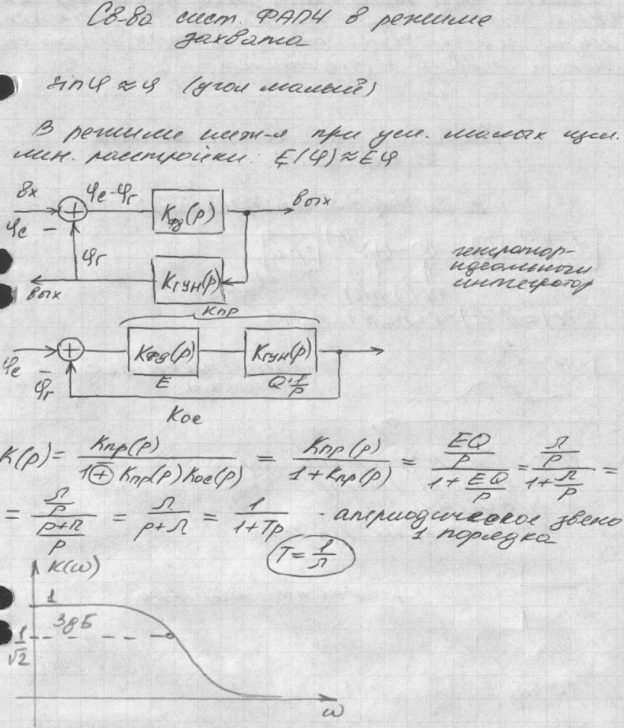 Св-ва сист. ФАПЧ в режиме
захвата
sinφ ≈ φ (угол малый)
В режиме при усл. малых
лин. расстройки. E(φ) ≈ Eφ
вх φс - φс-φг Kфд(p) вых
φг
вых Kгун(p)
генератор-
идеальный
интегратор
Kпр
φс - φг Kфд(p) Kгун(p)
E Q·1/p
Kос
K(p) = Kпр(p)/(1+Kпр(p)Kос(p)) = Kпр(p)/(1+Kпр(p)) = (EQ/p)/(1+EQ/p) = (Ω/p)/(1+Ω/p) =
= (Ω/p)/((p+Ω)/p) = Ω/(p+Ω) = 1/(1+Tp) - апериодическое звено
1 порядка
T = 1/Ω
K(ω)
1
3дБ
1/√2
ω